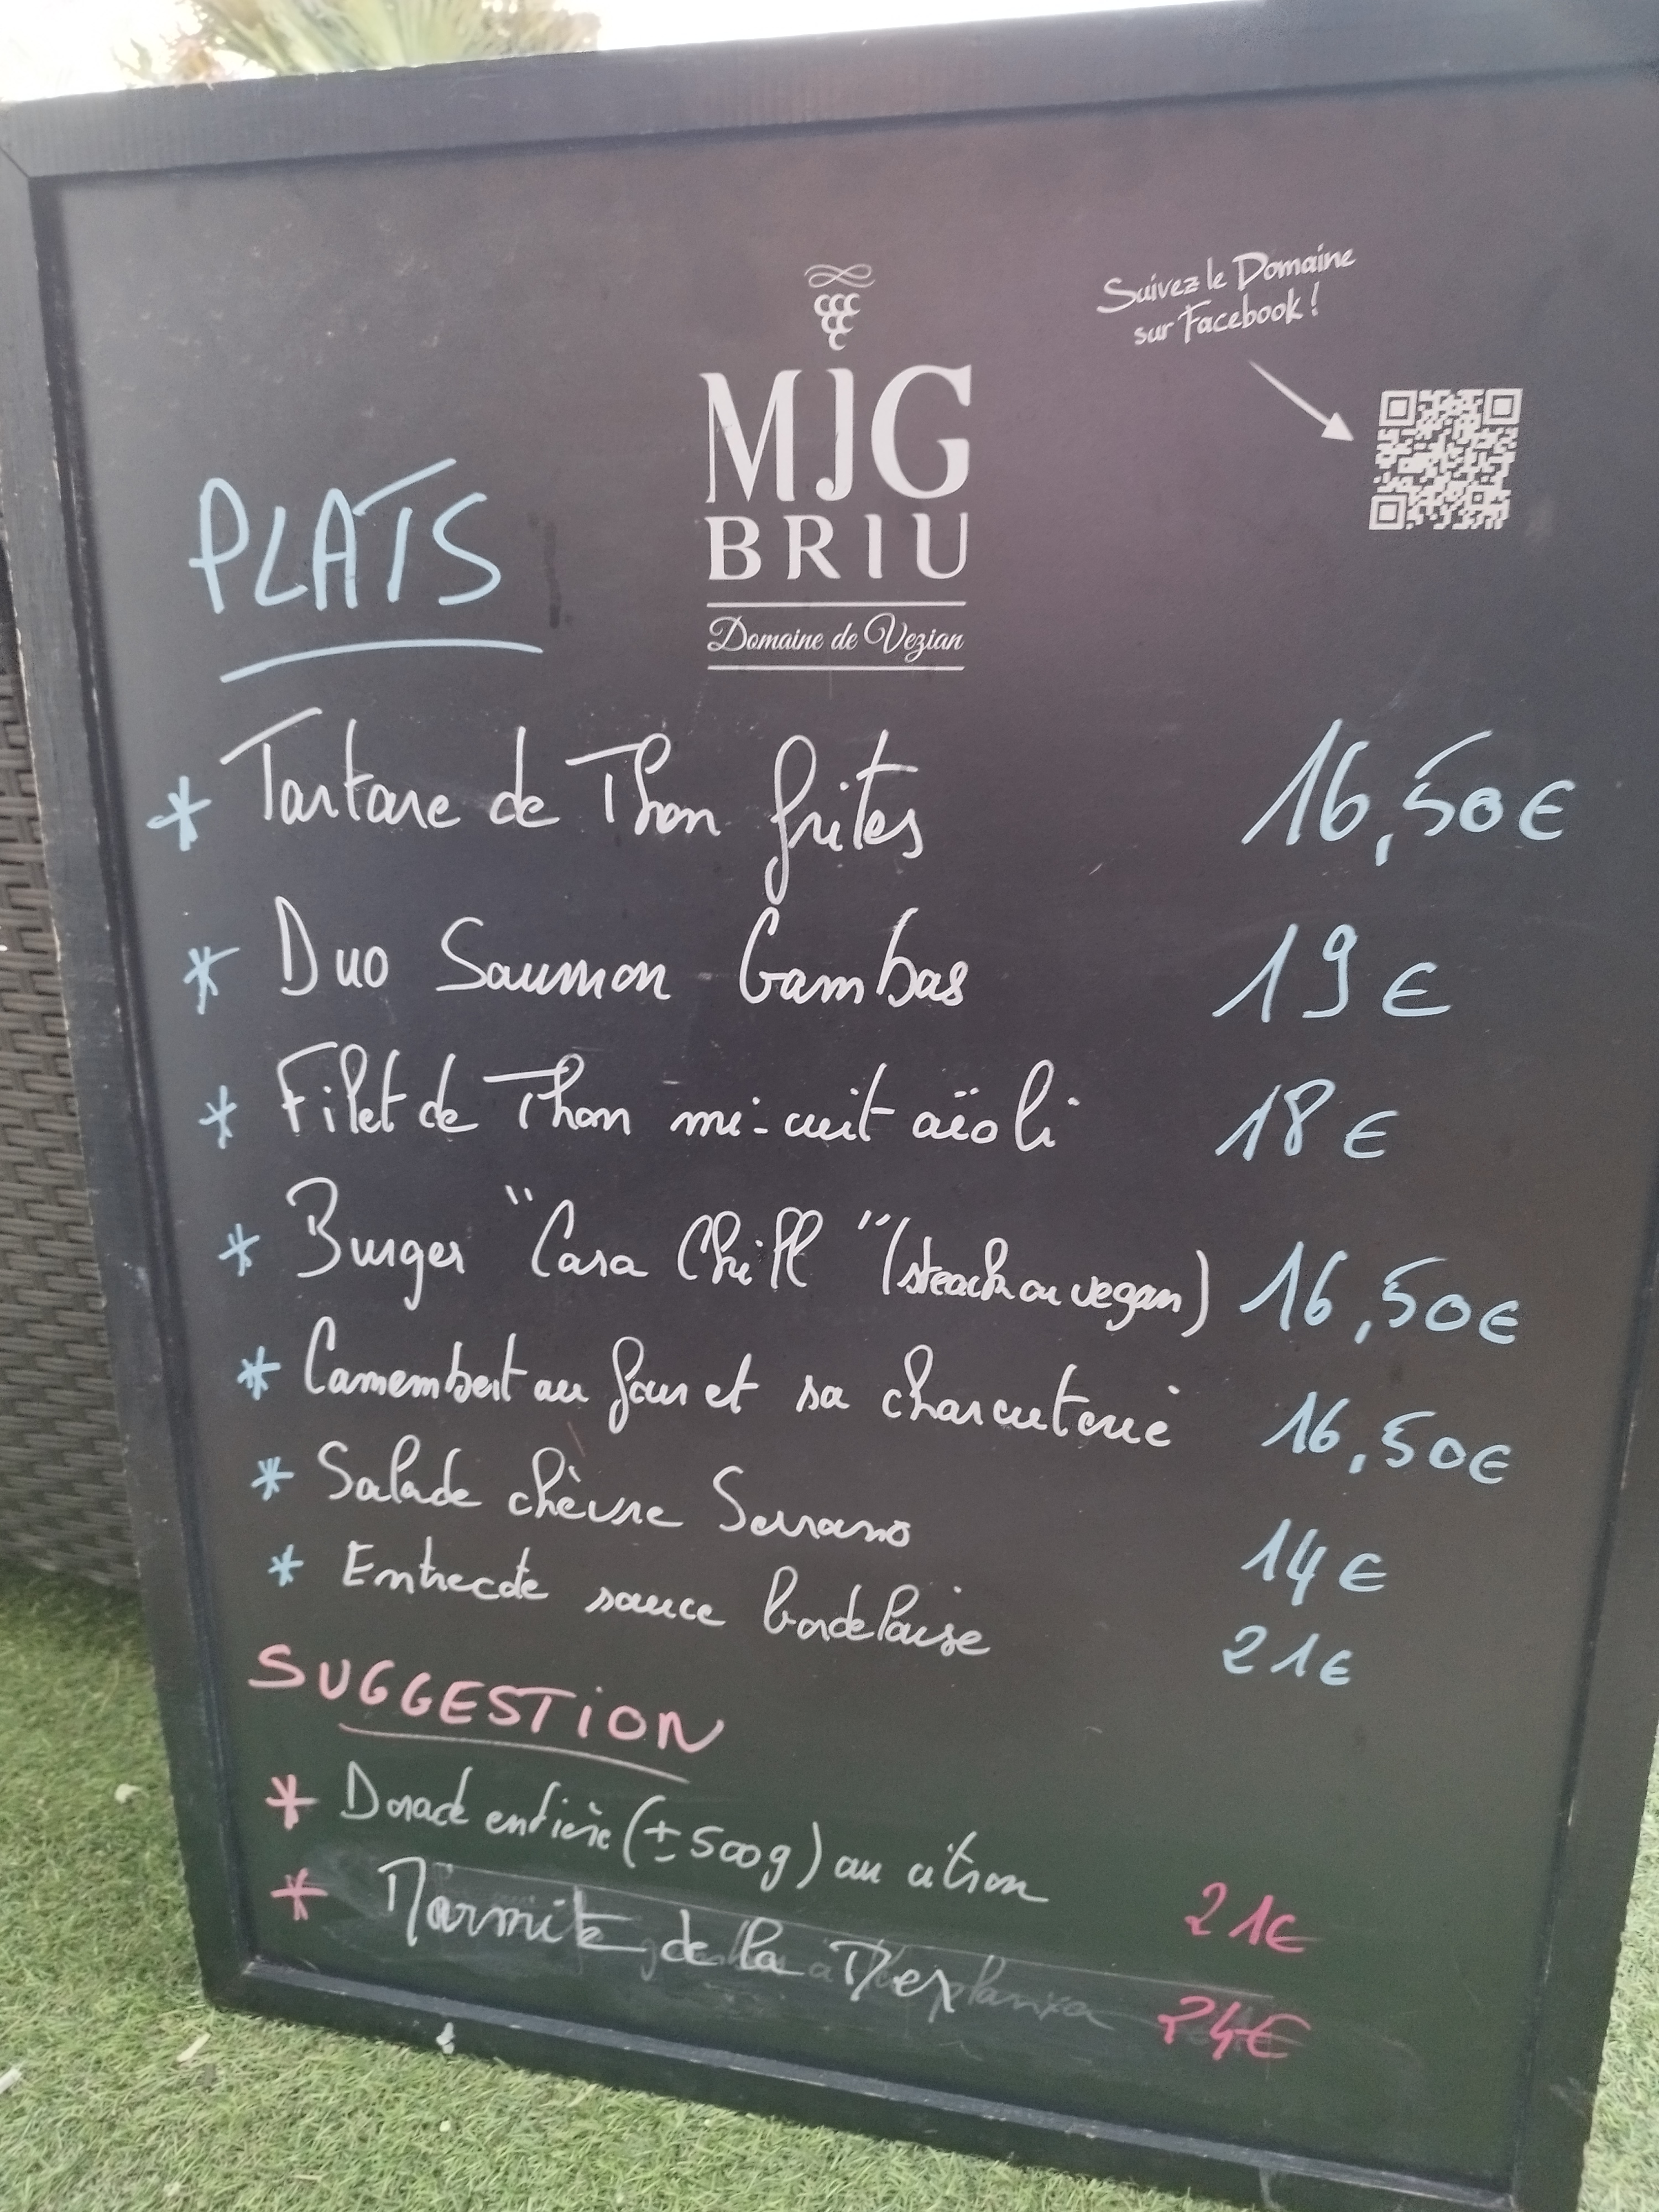 Suivez le Domaine
sur Facebook !
MJG
BRIU
Domaine de Vezian
PLATS
* Tartare de Thon frites 16,50€
* Duo Saumon Gambas 19€
* Filet de Thon mi-cuit aïoli 18€
* Burger "Casa Chill" (steack ou vegan) 16,50€
* Camembert au four et sa charcuterie 16,50€
* Salade chèvre Serrano 14€
* Entrecote sauce bordelaise 21€
SUGGESTION
* Dorade entière (±500g) au citron 21€
* Marmite de la Mer 24€